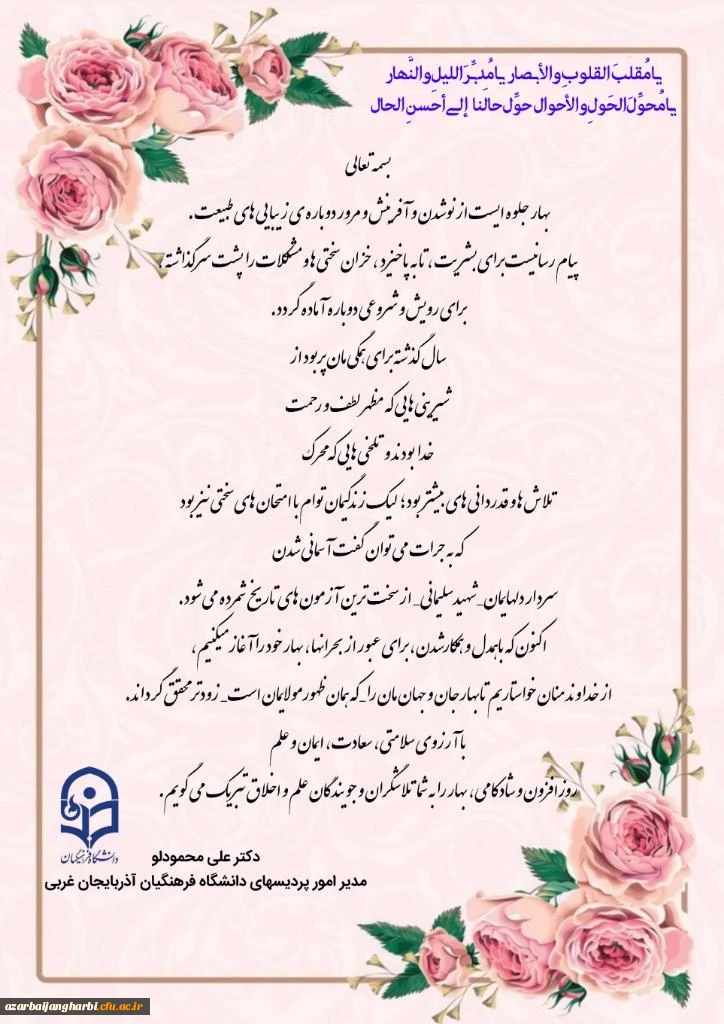 یا مُقلبَ القلوبِ والأبصار یا مُدبِّرَ اللیلِ والنَّهار
یا مُحوِّلَ الحَولِ والأحوال حوِّل حالنا إلی أحسنِ الحال
بسمه تعالی
بهار جلوه ایست از نو شدن و آفرینش و مرور دوباره ی زیبایی های طبیعت.
پیام رسانیست برای بشریت، تا به پا خیزد، خزان سختی ها و مشکلات را پشت سر گذاشته،
برای رویش و شروعی دوباره آماده گردد.
سال گذشته برای همگی مان پر بود از
شیرینی هایی که مظهر لطف و رحمت
خدا بودند و تلخی هایی که محرک
تلاش ها و قدردانی های بیشتر بود؛ لیک زندگیمان توام با امتحان های سختی نیز بود
که به جرات می توان گفت آسمانی شدن
سردار دلهایمان_شهید سلیمانی_ از سخت ترین آزمون های تاریخ شمرده می شود.
اکنون که با همدل و همکار شدن، برای عبور از بحرانها، بهار خود را آغاز میکنیم،
از خداوند منان خواستاریم تا بهار جان و جهان مان را_که همان ظهور مولایمان است_ زودتر محقق گرداند.
با آرزوی سلامتی، سعادت، ایمان و علم
روزافزون و شادکامی، بهار را به شما تلاشگران و جویندگان علم و اخلاق تبریک می گویم.
دانشگاه فرهنگیان
دکتر علی محمودلو
مدیر امور پردیسهای دانشگاه فرهنگیان آذربایجان غربی
azarbaijangharbi.cfu.ac.ir